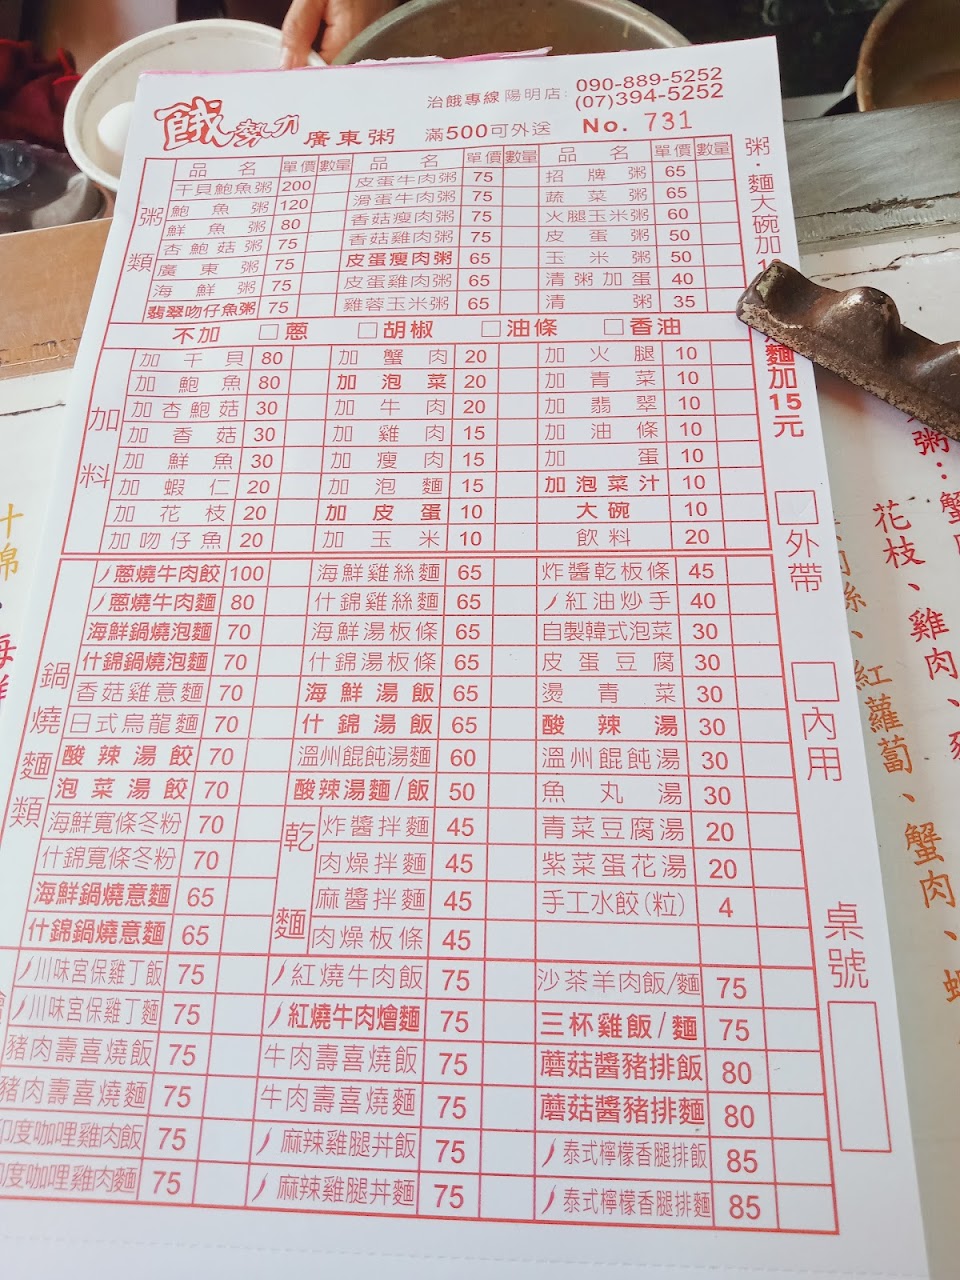 餓勢力 廣東粥 滿500可外送 No. 731
治餓專線 陽明店: 090-889-5252
(07)394-5252
粥類
品名 單價 數量 品名 單價 數量 品名 單價 數量
干貝鮑魚粥 200 皮蛋牛肉粥 75 招牌粥 65
鮑魚粥 120 滑蛋牛肉粥 75 蔬菜粥 65
鮮魚粥 80 香菇瘦肉粥 75 火腿玉米粥 60
杏鮑菇粥 75 香菇雞肉粥 75 皮蛋粥 50
廣東粥 75 皮蛋瘦肉粥 65 玉米粥 50
海鮮粥 75 皮蛋雞肉粥 65 清粥加蛋 40
翡翠吻仔魚粥 75 雞蓉玉米粥 65 清粥 35
不加 □蔥 □胡椒 □油條 □香油
加料
加干貝 80 加蟹肉 20 加火腿 10
加鮑魚 80 加泡菜 20 加青菜 10
加杏鮑菇 30 加牛肉 20 加翡翠 10
加香菇 30 加雞肉 15 加油條 10
加鮮魚 30 加瘦肉 15 加蛋 10
加蝦仁 20 加泡麵 15 加泡菜汁 10
加花枝 20 加皮蛋 10 大碗 10
加吻仔魚 20 加玉米 10 飲料 20
鍋燒麵類
蔥燒牛肉餃 100 海鮮雞絲麵 65 炸醬乾板條 45
蔥燒牛肉麵 80 什錦雞絲麵 65 紅油炒手 40
海鮮鍋燒泡麵 70 海鮮湯板條 65 自製韓式泡菜 30
什錦鍋燒泡麵 70 什錦湯板條 65 皮蛋豆腐 30
香菇雞意麵 70 海鮮湯飯 65 燙青菜 30
日式烏龍麵 70 什錦湯飯 65 酸辣湯 30
酸辣湯餃 70 溫州餛飩湯麵 60 溫州餛飩湯 30
泡菜湯餃 70 酸辣湯麵/飯 50 魚丸湯 30
乾麵
海鮮寬條冬粉 70 炸醬拌麵 45 青菜豆腐湯 20
什錦寬條冬粉 70 肉燥拌麵 45 紫菜蛋花湯 20
海鮮鍋燒意麵 65 麻醬拌麵 45 手工水餃(粒) 4
什錦鍋燒意麵 65 肉燥板條 45
川味宮保雞丁飯 75 紅燒牛肉飯 75 沙茶羊肉飯/麵 75
川味宮保雞丁麵 75 紅燒牛肉燴麵 75 三杯雞飯/麵 75
豬肉壽喜燒飯 75 牛肉壽喜燒飯 75 蘑菇醬豬排飯 80
豬肉壽喜燒麵 75 牛肉壽喜燒麵 75 蘑菇醬豬排麵 80
印度咖哩雞肉飯 75 麻辣雞腿丼飯 75 泰式檸檬香腿排飯 85
印度咖哩雞肉麵 75 麻辣雞腿丼麵 75 泰式檸檬香腿排麵 85
粥·麵大碗加1
麵加15元
□外帶
□內用
桌號
什錦、海鮮
粥:蟹
花枝、雞肉、
絲、紅蘿蔔、蟹肉、